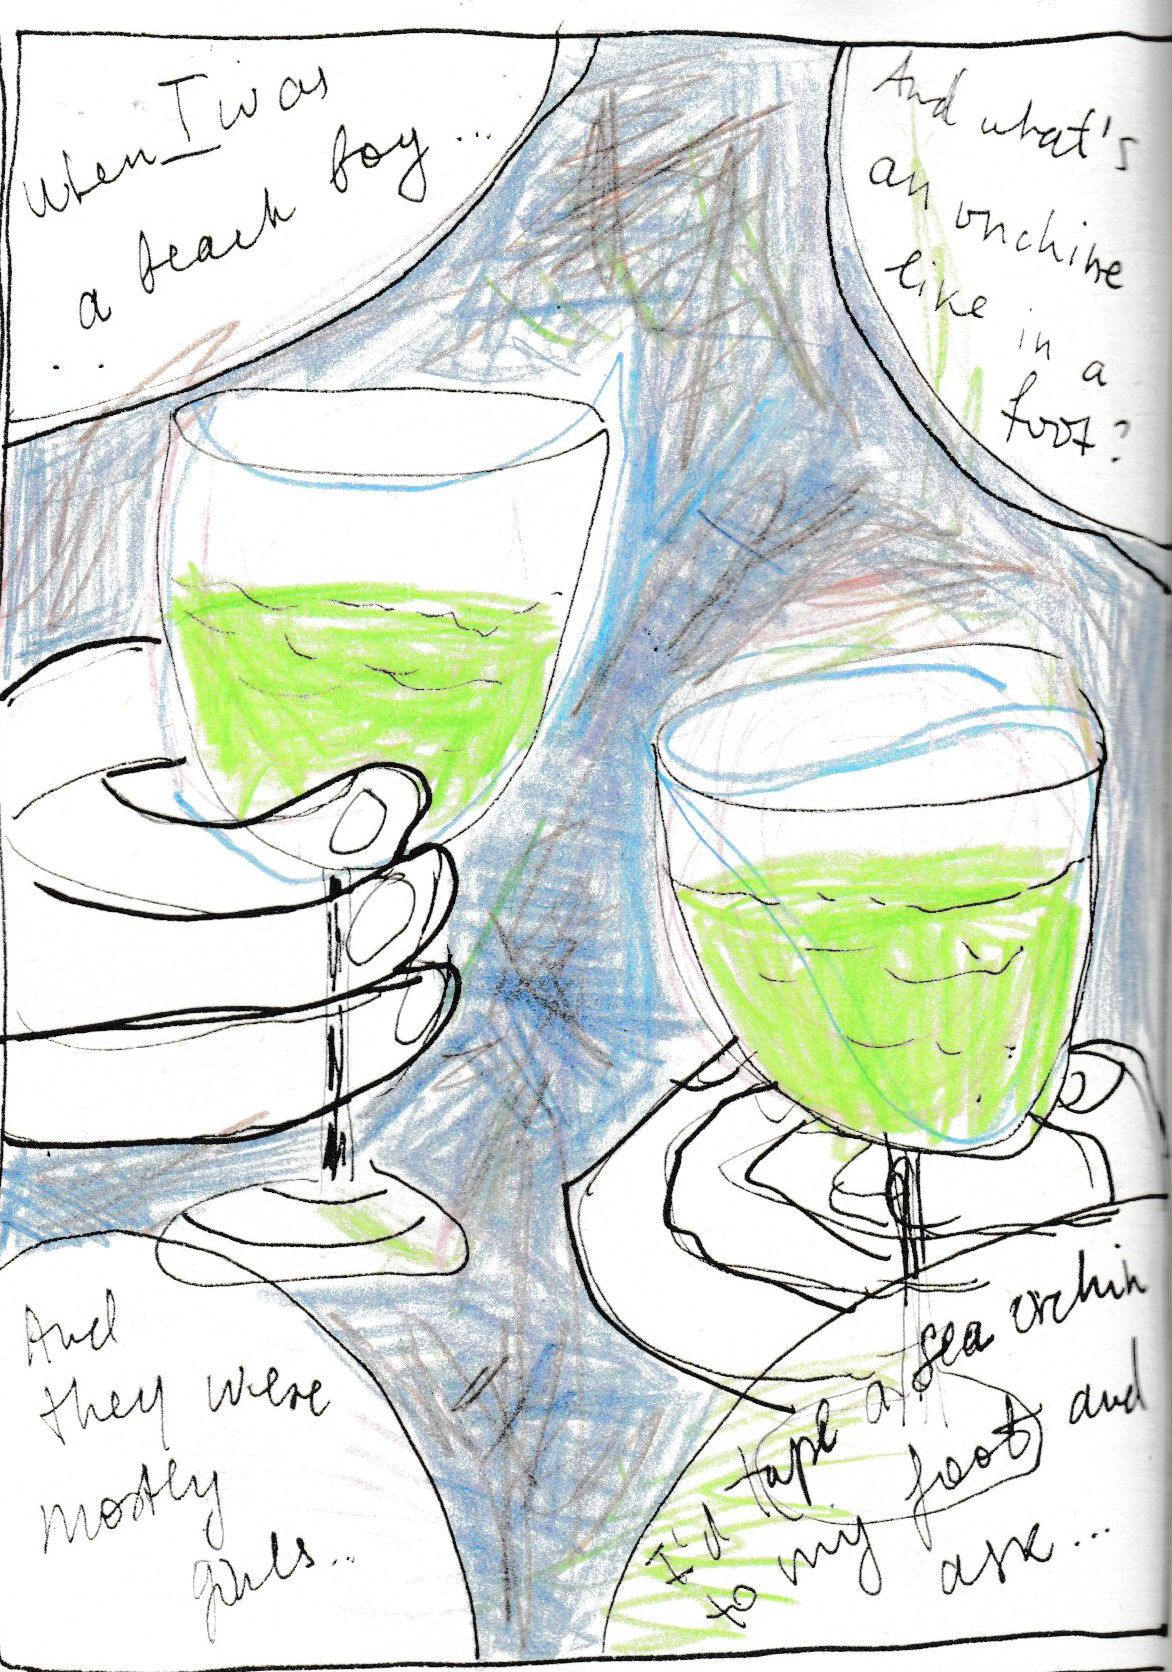 When I was
a beach boy...
..
And what's
an unchine
like in a
foot?
And
they were
mostly
girls...
I'd tape a sea urchin
to my foot and
ask...